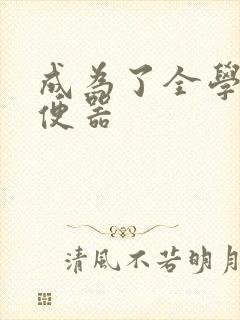 成為了全學
便器
清風不若明月